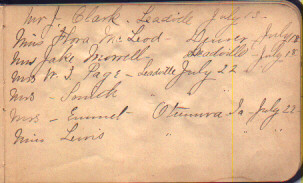 Mr J. Clark - Leadville July 13 -
Miss Flora McLeod - Denver - July 18
Mrs Jake Morrell Leadville - July 18
Mrs W. J. Page - Leadville July 22
Mrs - Smith " "
Mrs - Emmet - Ottumwa Ia - July 22
Miss Lewis " " "